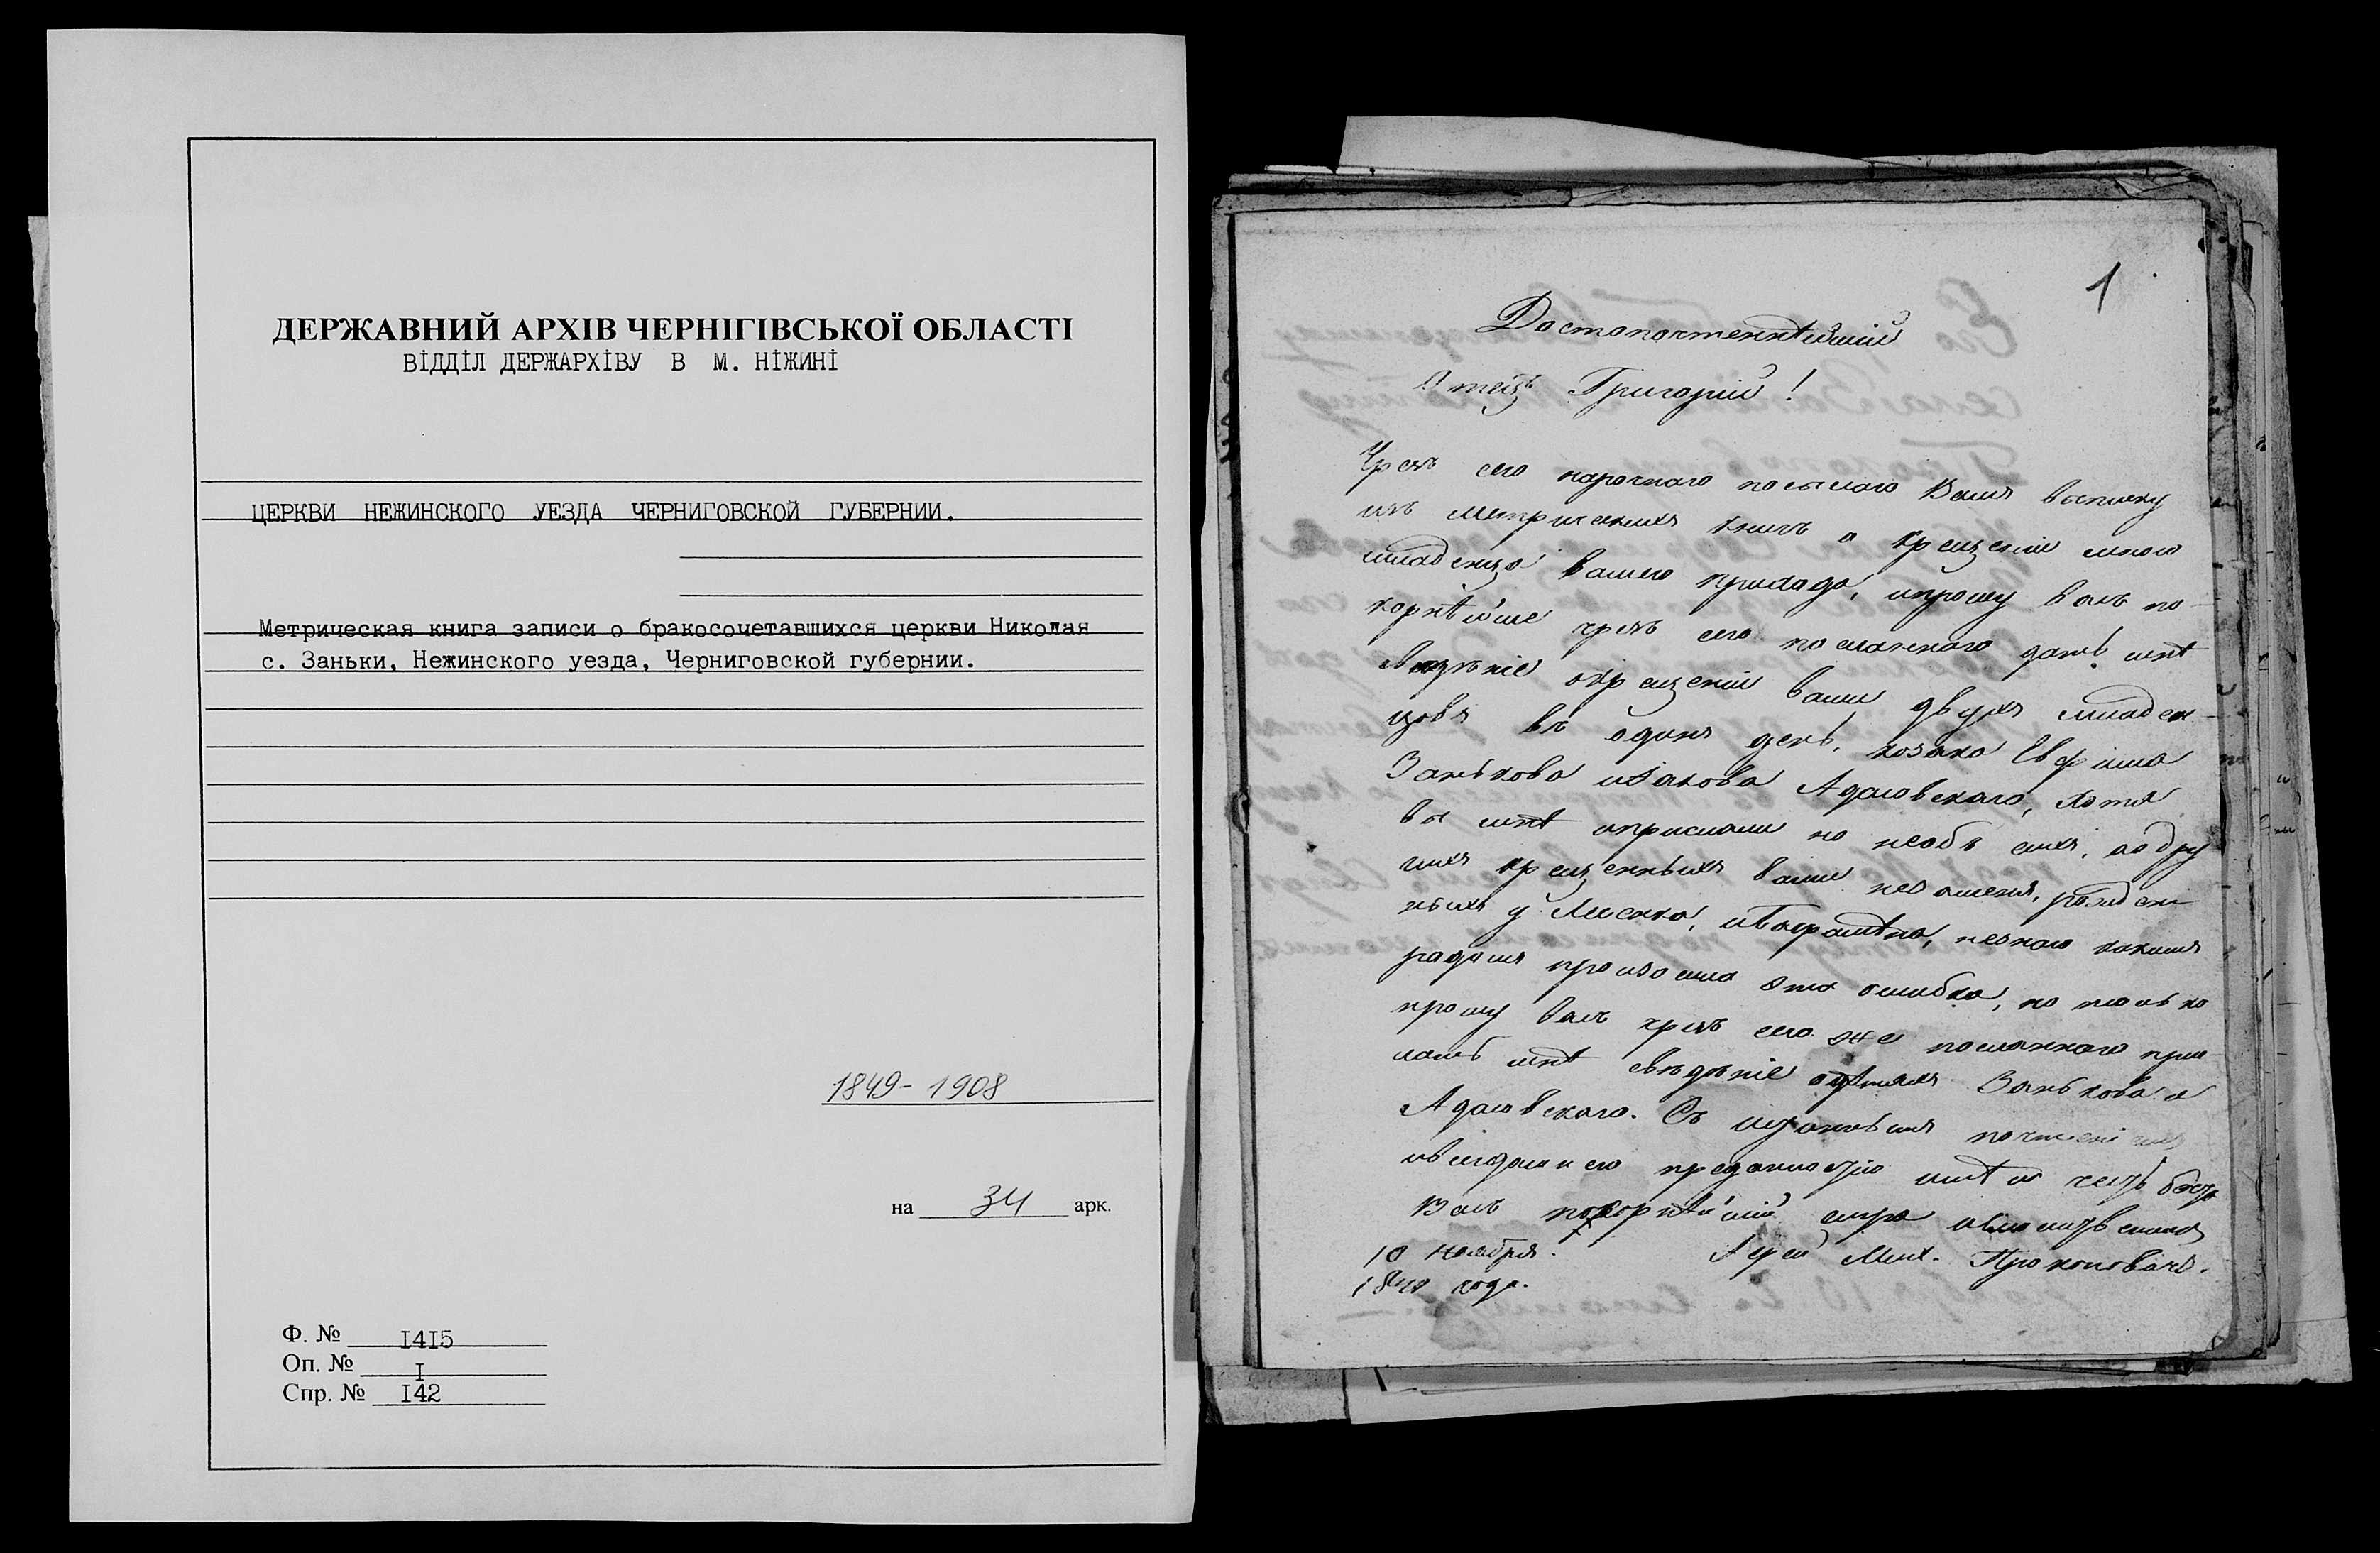 ДЕРЖАВНИЙ АРХІВ ЧЕРНІГІВСЬКОЇ ОБЛАСТІ
ВІДДІЛ ДЕРЖАРХІВУ В М. НІЖИНІ
ЦЕРКВИ НЕЖИНСКОГО УЕЗДА ЧЕРНИГОВСКОЙ ГУБЕРНИИ.
Метрическая книга записи о бракосочетавшихся церкви Николая
с. Заньки, Нежинского уезда, Черниговской губернии.
1849-1908
на 34 арк.
Ф. № I4I5
Оп. № I
Спр. № I42
1
Достопочтеннѣйшій
Отецъ Григорій!
Чрезъ сего нарочнаго посылаю Вамъ выписку
изъ метрическихъ книгъ о крещеніи мною
младенца вашего прихода, и прошу васъ по-
корнѣйше чрезъ сего посланнаго дать мнѣ
свѣдѣніе о крещеніи вами двухъ младен-
цовъ въ одинъ день, козака Евфима
Занькова и Якова Адаловскаго, хотя
вы мнѣ и прислали но не объ сихъ, а о дру
гихъ крещенныхъ вами рожден-
ныхъ у незнаю какимъ
родомъ произошла эта ошибка, но только
прошу васъ чрезъ сего же посланнаго при
лать мнѣ свѣдѣніе о дѣтяхъ Занькова и
Адаловскаго. Съ почтеніемъ
и преданностію имѣю честь быть
Васъ покорнѣйшій слуга
10 ноября. Іерей Мих. Прокоповичъ.
года.